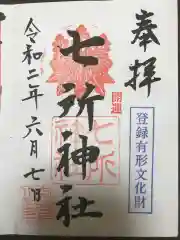 奉拝
登録有形文化財
開運
七所神社
令和二年六月七日